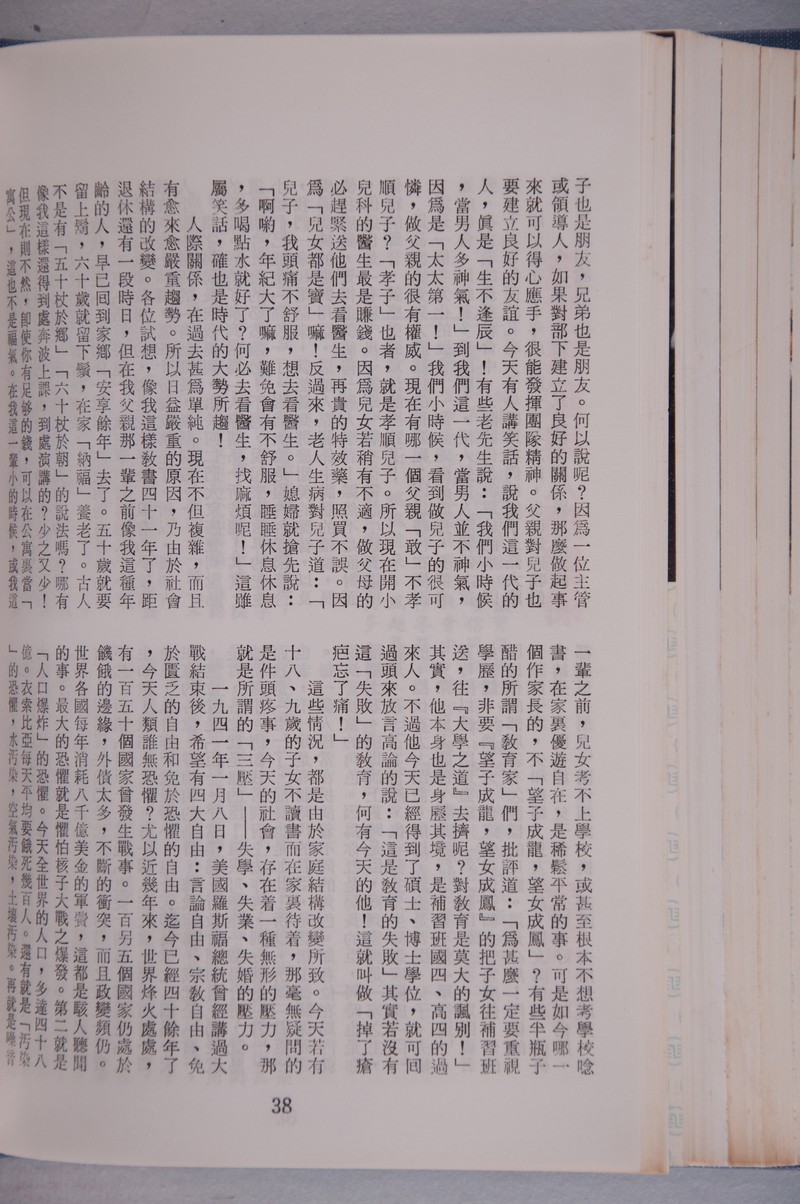 子也是朋友，兄弟也是朋友。何以說呢？因爲一位主管
或領導人，如果對部下建立了良好的關係，那麼做起事
來就可以得心應手，很能發揮團隊精神。父親對兒子也
要建立良好的友誼。今天有人講笑話，說我們這一代的
人，眞是「生不逢辰」！有些老先生說：「我們小時候
，當男人多神氣！」到我們這一代，當男人並不神氣，
因爲是「太太第一！」我們小時候，看到做兒子的很可
憐，做父親的很有權威。現在有哪一個父親「敢」不孝
順兒子？「孝子」也者，就是孝順兒子。所以現在開小
兒科的醫生最是賺錢。因爲兒女若稍有不適，做父母的
必趕緊送他們去看醫生，再貴的特效藥，照買不誤。因
爲「兒女都是寶」嘛！反過來，老人生病對兒子道：「
兒子，我頭痛不舒服，想去看醫生。」媳婦就搶先說：
「啊喲，年紀大了嘛，難免會有不舒服，睡睡休息休息
，多喝點水就好了？何必去看醫生，找麻煩呢！」這雖
屬笑話，確也是時代的大勢所趨！
人際關係，在過去甚爲單純。現在不但複雜，而且
有愈來愈嚴重趨勢。所以日益嚴重的原因，乃由於社會
結構的改變。各位試想，像我這樣敎書四十一年了，距
退休還有一段時日，但在我父親那一輩之前像我這種年
齡的人，早已回到家鄉「安享餘年」去了。五十歲就要
留上鬍，六十歲就留下鬚，在家「納福」養老了。古人
不是有「五十杖於鄉」「六十杖於朝」的說法嗎？哪有
像我這樣還得到處奔波上課，到處演講的？少之又少！
但現在則不然，即使你有足够的錢，可以在公寓裏當「
寓公」，這也不是福氣。在我這一輩小的時候，或我這
一輩之前，兒女考不上學校，或甚至根本不想考學校唸
書，在家裏優遊自在，是稀鬆平常的事。可是如今哪一
個作家長的，不「望子成龍，望女成鳳」？有些半瓶子
醋的所謂「敎育家」們，批評道：「爲甚麼一定要重視
學歷，非要『望子成龍，望女成鳳』的把子女往補習班
送，往『大學之道』去擠呢？對敎育是莫大的諷刺！」
其實，他本身也是身歷其境，是補習班國四、高四的過
來人。不過他今天已經得到了碩士、博士學位，就可回
過頭來放言高論的說：「這是敎育的失敗」其實若沒有
這「失敗」的敎育，何有今天的他！這就叫做「掉了瘡
疤忘了痛！」
這些情況，都是由於家庭結構改變所致。今天若有
十八、九歲的子女不讀書而在家裏待着，那毫無疑問的
是件頭疼事，今天的社會，存在着一種無形的壓力，那
就是所謂的「三壓」——失學、失業、失婚的壓力。
一九四一年一月八日，美國羅斯福總統曾經講過大
戰結束後，希望有四大自由：言論自由、宗敎自由、免
於匱乏的自由和免於恐懼的自由。迄今已經四十餘年了
，今天人類誰無恐懼？尤以近幾年來，世界烽火處處，
有一百五十個國家曾發生戰事。一百另五個國家仍處於
饑餓的邊緣，外債太多，不斷的衝突，而且政變頻仍。
世界各國每年消耗八千億美金的軍費，這都是駭人聽聞
的事。最大的恐懼就是懼怕核子大戰之爆發。第二就是
「人口爆炸」的恐懼。今天全世界的人口，多達四十八
億。衣索比亞每天平均要餓死幾百人。還有就是「汚染
」的恐懼，水汚染，空氣汚染，土壤汚染。再就是噪音
38